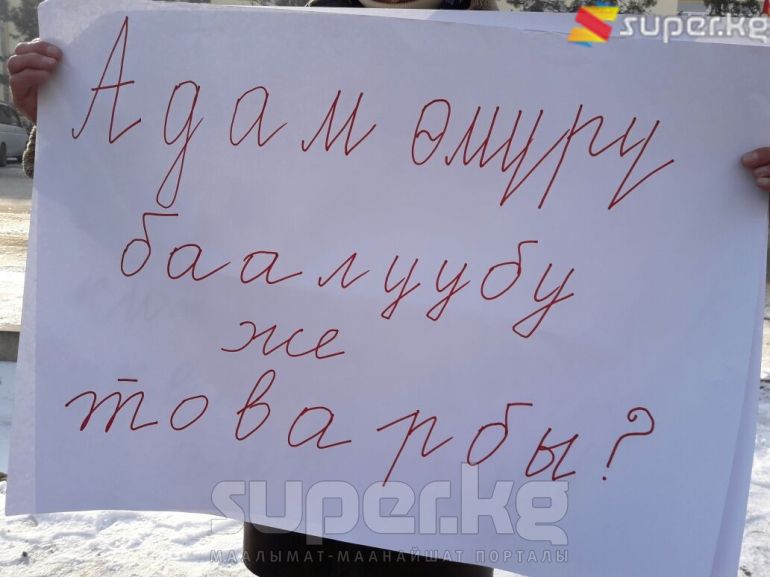 super.kg
Адам өмүрү
баалуубу
же
товарбы?
super.kg
МААЛЫМАТ-МААНАЙШАТ ПОРТАЛЫ